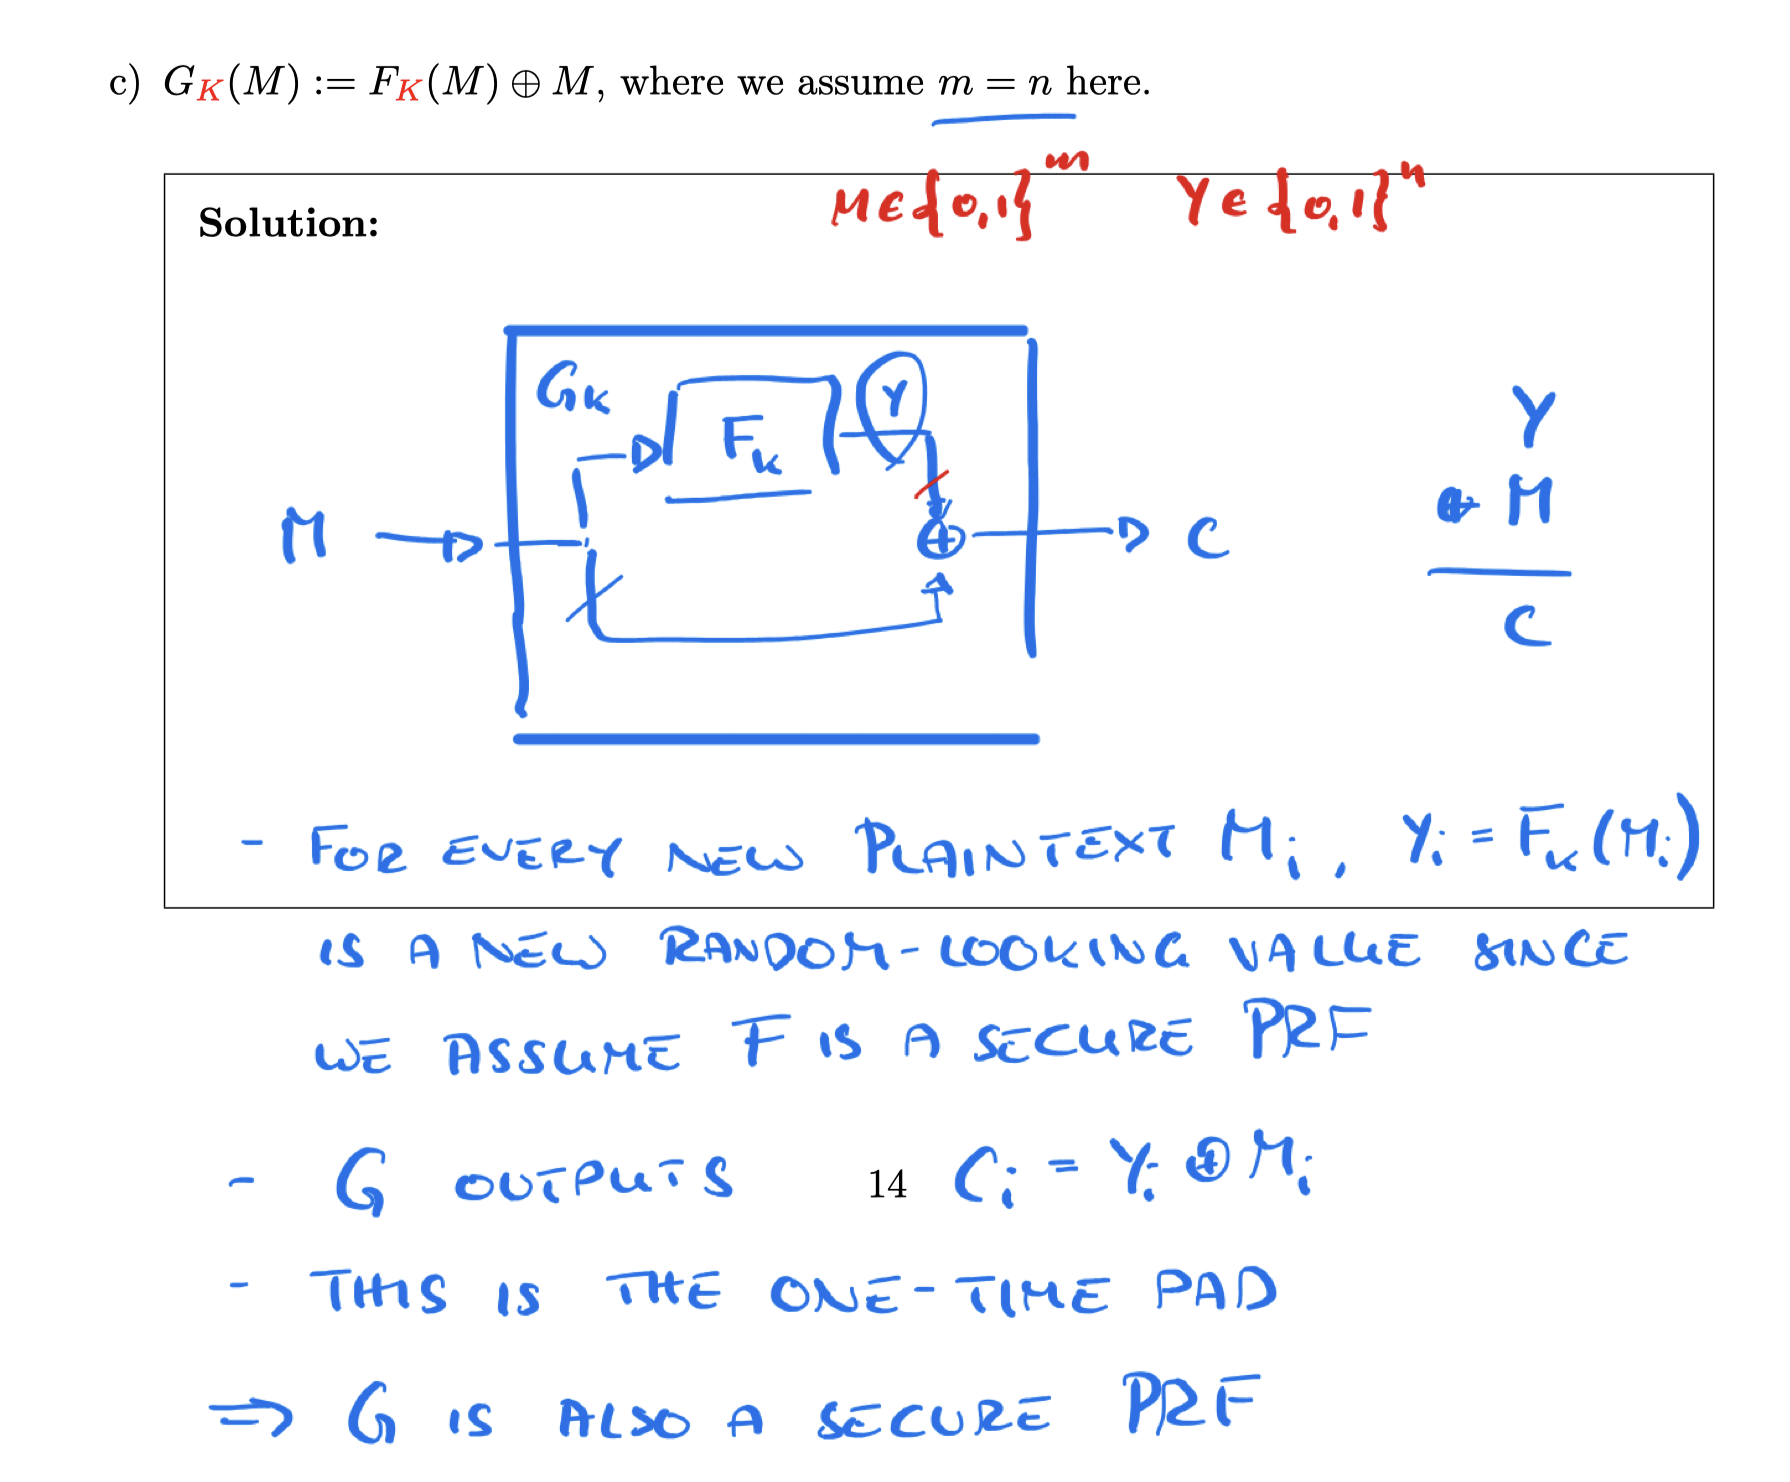 c) G_K(M) := F_K(M) ⊕ M, where we assume m = n here.
M ∈ {0,1}^m Y ∈ {0,1}^n
Solution:
G_K
F_K
Y
M
⊕
C
Y
⊕ M
C
- FOR EVERY NEW PLAINTEXT M_i, Y_i = F_K(M_i)
IS A NEW RANDOM-LOOKING VALUE SINCE
WE ASSUME F IS A SECURE PRF
- G OUTPUTS C_i = Y_i ⊕ M_i
14
- THIS IS THE ONE-TIME PAD
⇒ G IS ALSO A SECURE PRF